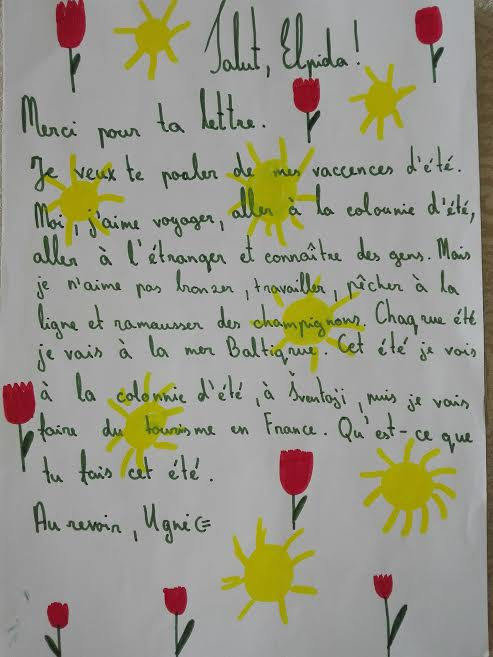 Salut, Elpida!
Merci pour ta lettre.
Je veux te poaler de mes vaccences d'été.
Moi, j'aime voyager, aller à la colounie d'été,
aller à l'étranger et connaître des gens. Mais
je n'aime pas bronzer, travailler, pêcher à la
ligne et ramausser des champignons. Chaque été
je vais à la mer Baltique. Cet été je vais
à la colonnie d'été, à Šventoji, puis je vais
faire du tourisme en France. Qu'est-ce que
tu fais cet été.
Au revoir, Ugnė